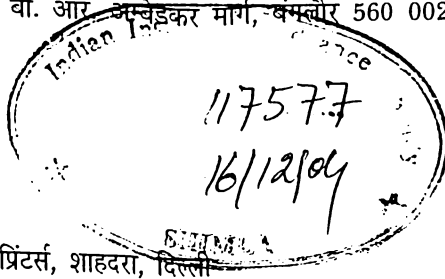 बी. आर. अम्बेडकर मार्ग, बंगलौर 560 002
Indian
117577
16/12/04
SHIMLA
प्रिंटर्स, शाहदरा, दिल्ली